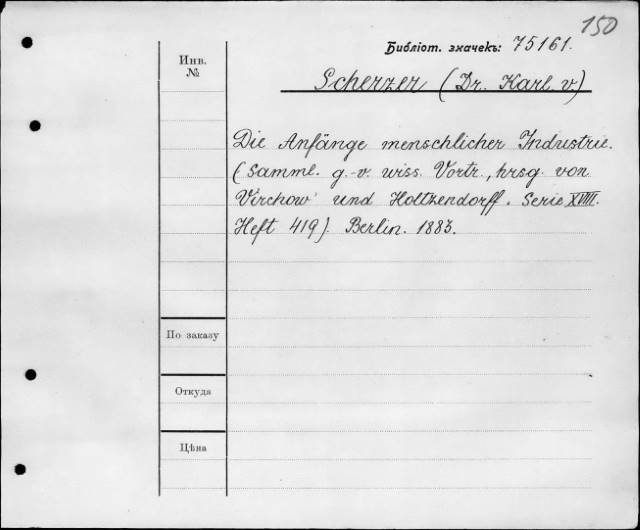 150
Библіот. значекъ: 75161.
Инв.
№
Scherzer (Dr. Karl v)
Die Anfänge menschlicher Industrie.
(Samml. g.-v. wiss. Vortr., hrsg. von
Virchow und Holtzendorff. Serie XVIII.
Heft 419). Berlin. 1883.
По заказу
Откуда
Цѣна